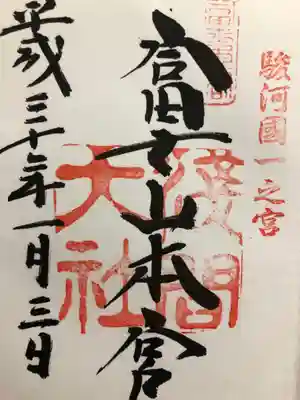 駿河國一之宮
富士山本宮
浅間大社
平成三十年一月三日